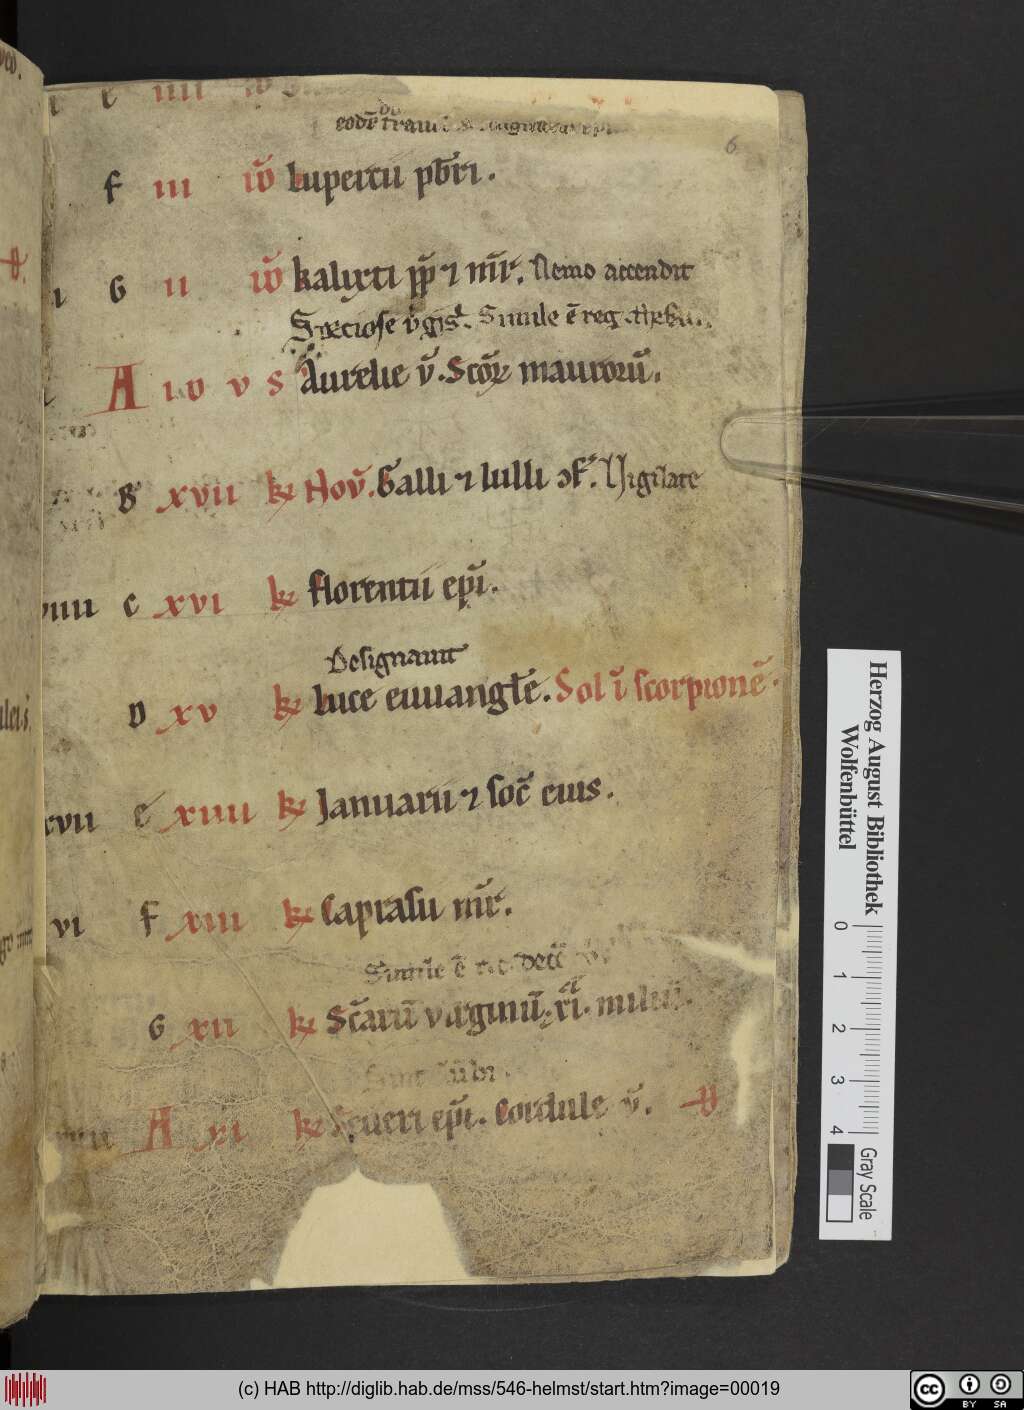 e iiii iɒ̄
eodē
f iii iɒ̄ lupercii pb̄ri.
G ii iɒ̄ kalixti pp̄ ⁊ mr̄. Nemo accendit
Speciose v̄gīs. Simile ē reg
A idv̄s Aurelie v̄. Scōꝝ mauroꝝū.
B xvii kꝭ Nov̄. Galli ⁊ lulli ↄf̄. Uigilate
viiii c xvi kꝭ florentii ep̄i.
Designauit
D xv kꝭ luce euuanglē. Sol ī scorpionē.
xvii e xiiii kꝭ Januarii ⁊ soc̄ eius.
vi f xiii kꝭ Caprasii mr̄.
Simile ē decē
G xii kꝭ Sc̄arū virginū. xi. miliū.
A xi kꝭ Seueri ep̄i. Cordule v̄.
6
Herzog August Bibliothek
Wolfenbüttel
0 1 2 3 4
Gray Scale
(c) HAB http://diglib.hab.de/mss/546-helmst/start.htm?image=00019
cc BY SA